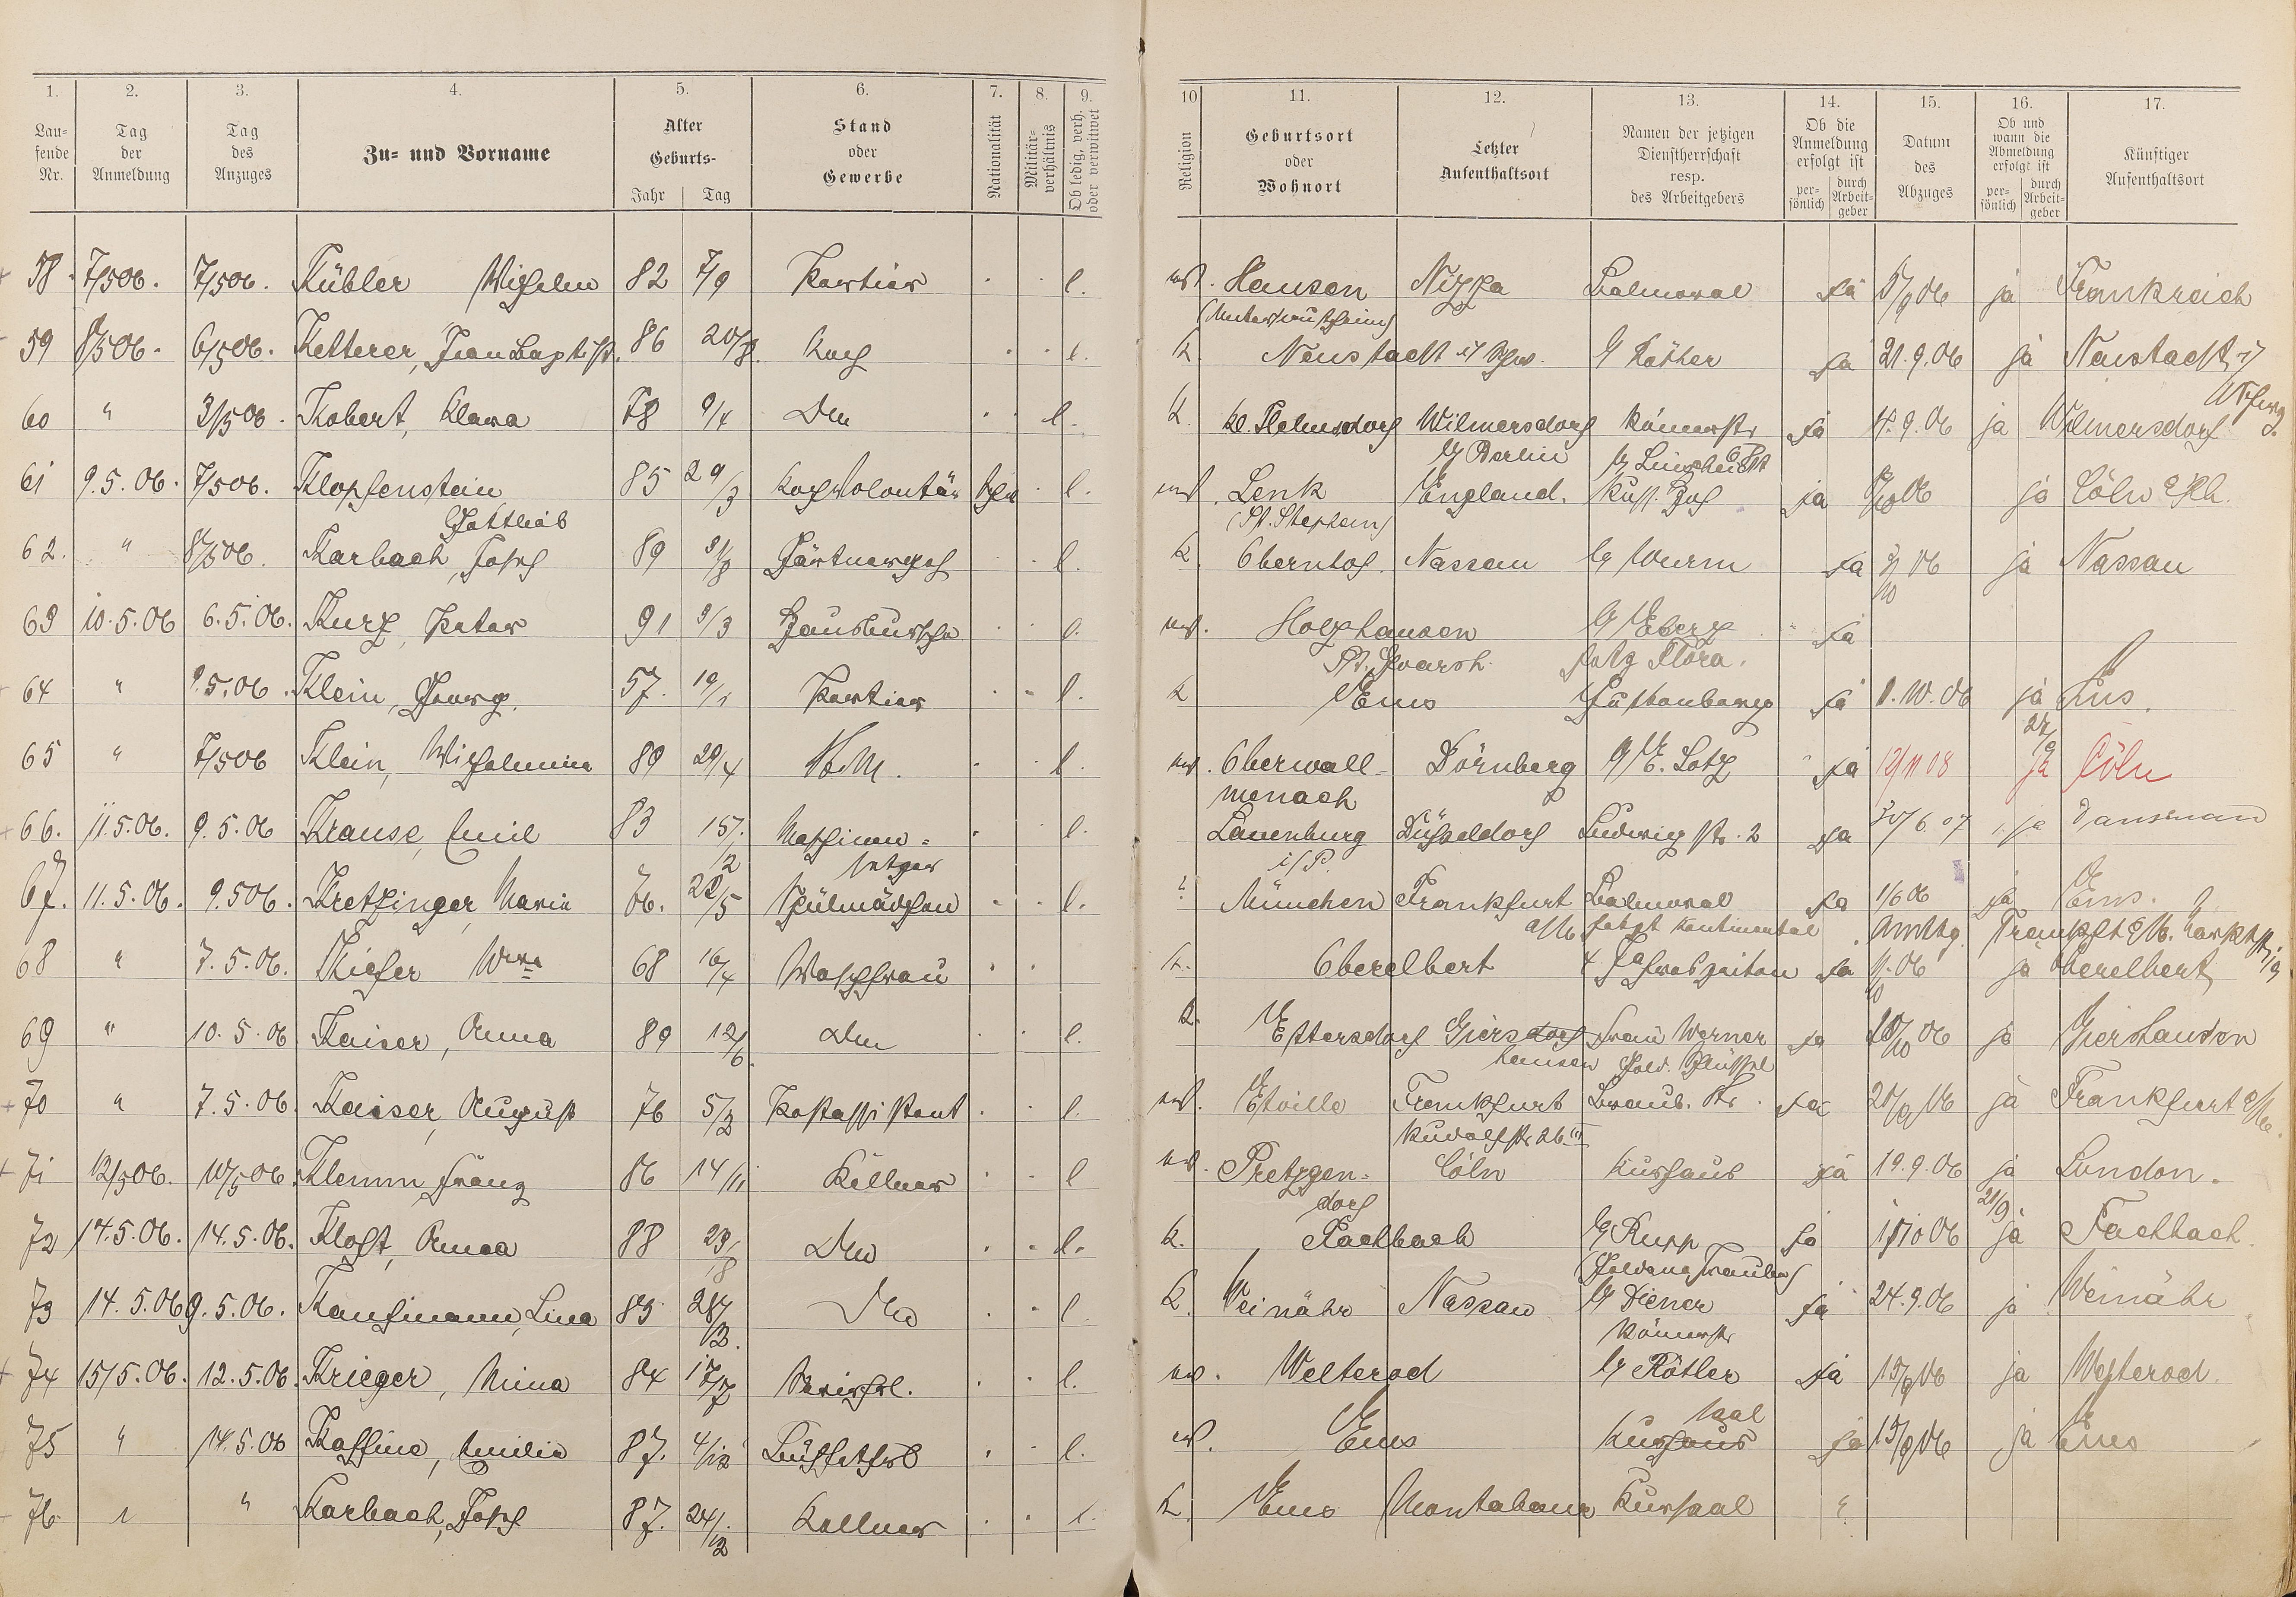 1. 2. 3. 4. 5. 6. 7. 8. 9.
Laufende Nr. Tag der Anmeldung Tag des Anzuges Zu- und Vorname Alter Geburts- Jahr Tag Stand oder Gewerbe Nationalität Militärverhältnis Ob ledig, verh. oder verwitwet
10 11. 12. 13. 14. 15. 16. 17.
Religion Geburtsort oder Wohnort Letzter Aufenthaltsort Namen der jetzigen Dienstherrschaft resp. des Arbeitgebers Ob die Anmeldung erfolgt ist persönlich durch Arbeitgeber Datum des Abzuges Ob und wann die Abmeldung erfolgt ist persönlich durch Arbeitgeber Künftiger Aufenthaltsort
58. 7/5 06. 7/5 06. Kübler Wilhelm 82 7/9 Portier l. ev. Hausen Nizza Balmoral ja 5/9 06 ja Frankreich
59 8/5 06. 6/5 06. Ketterer, Jean Baptist. 86 20/8. Koch l. k. Neustadt i/ Schw. b/ Röther ja 21.9.06 ja Neustadt i/
60 " 3/5 06. Kobert, Klara 78 9/4 Dm l. k. Wilmersdorf Römerstr ja 4.9.06 ja Wilmersdorf
b/ Berlin
61 9.5.06. 7/5 06. Klopfenstein 85 29/3 Kochvolontär l. ev. Lenk England. Russ. Hof ja 8/10 06 ja Cöln a/Rh.
Gottlieb (St. Stephan)
62. " 8/5 06. Karbach, Josef 89 9/8 Gärtnergeh l. k. Obernhof Nassau b/ Wurm ja 3/10 06 ja Nassau
63 10.5.06 6.5.06. Kurz, Peter 91 9/3 Hausbursche l. ev. Holzhausen b/ Eberz ja
St. Goarsh. jetzt Flora.
64 " 9.5.06. Klein, Georg. 57. 10/1 Portier l. k Ems Fürstenberg ja 1.10.06 ja Ems.
65 " 7/5 06 Klein, Wilhelmine 89 29/4 l. ev. Oberwall- Dörnberg b/ E. Lotz ja 12/11 08 ja Cöln
menach
66. 11.5.06. 9.5.06 Krause, Emil 83 15/12 Maschinen- l. Lauenburg Düsseldorf Ludwigstr. 2 ja 30/6.07 ja
setzer i/P.
67. 11.5.06. 9.5 06. Kretzinger, Maria 76. 22/5 Spülmädchen l. ? München Frankfurt Balmoral ja 1/6 06 ja Ems.
a/M. jetzt Kontinental
68 " 7.5.06. Kiefer Wwe 68 16/4 Waschfrau k. Oberelbert 4 Jahreszeiten ja 1/10 06 ja Oberelbert
69 " 10.5.06 Kaiser, Anna 89 12/6. Dm l. k. Ettersdorf Giersdorf Frau Werner ja 20/10 06 ja Giershausen
hausen
70 " 7.5.06. Kaiser, August 76 5/3 Postassistent l. ev. Eltville Frankfurt Braub. Str. ja 20/9 06 ja Frankfurt a/M.
Rudolfstr 26 II
71 12/5 06. 10/5 06. Klemm, Franz 86 14/11 Kellner l ev. Pretzgen- Cöln Kurhaus ja 19.9.06 ja London.
dorf
72 14.5.06. 14.5.06. Kloft, Anna 88 23/8 Dm l. k. Fachbach b/ Rupp ja 1/10 06 ja Fachbach.
(Goldene Traube)
73 14.5.06 9.5.06. Kaufmann, Lina 85 28/12. Dm l. k. Weinähr Nassau b/ Diener ja 24.9.06 ja Weinähr
Römerstr
74 15/5.06. 12.5.06. Krieger, Mina 84 17/7 l. ev. Welterod b/ Rötler ja 15/9 06 ja Welterod.
75 " 14.5.06 Kassine, Emilie 87. 4/12 Büffetfrl l. ev. Ems Kurhaus saal ja 15/9 06 ja Ems
76. " " Karbach, Josef 87. 24/12 Kellner l. k. Ems Montabaur Kursaal